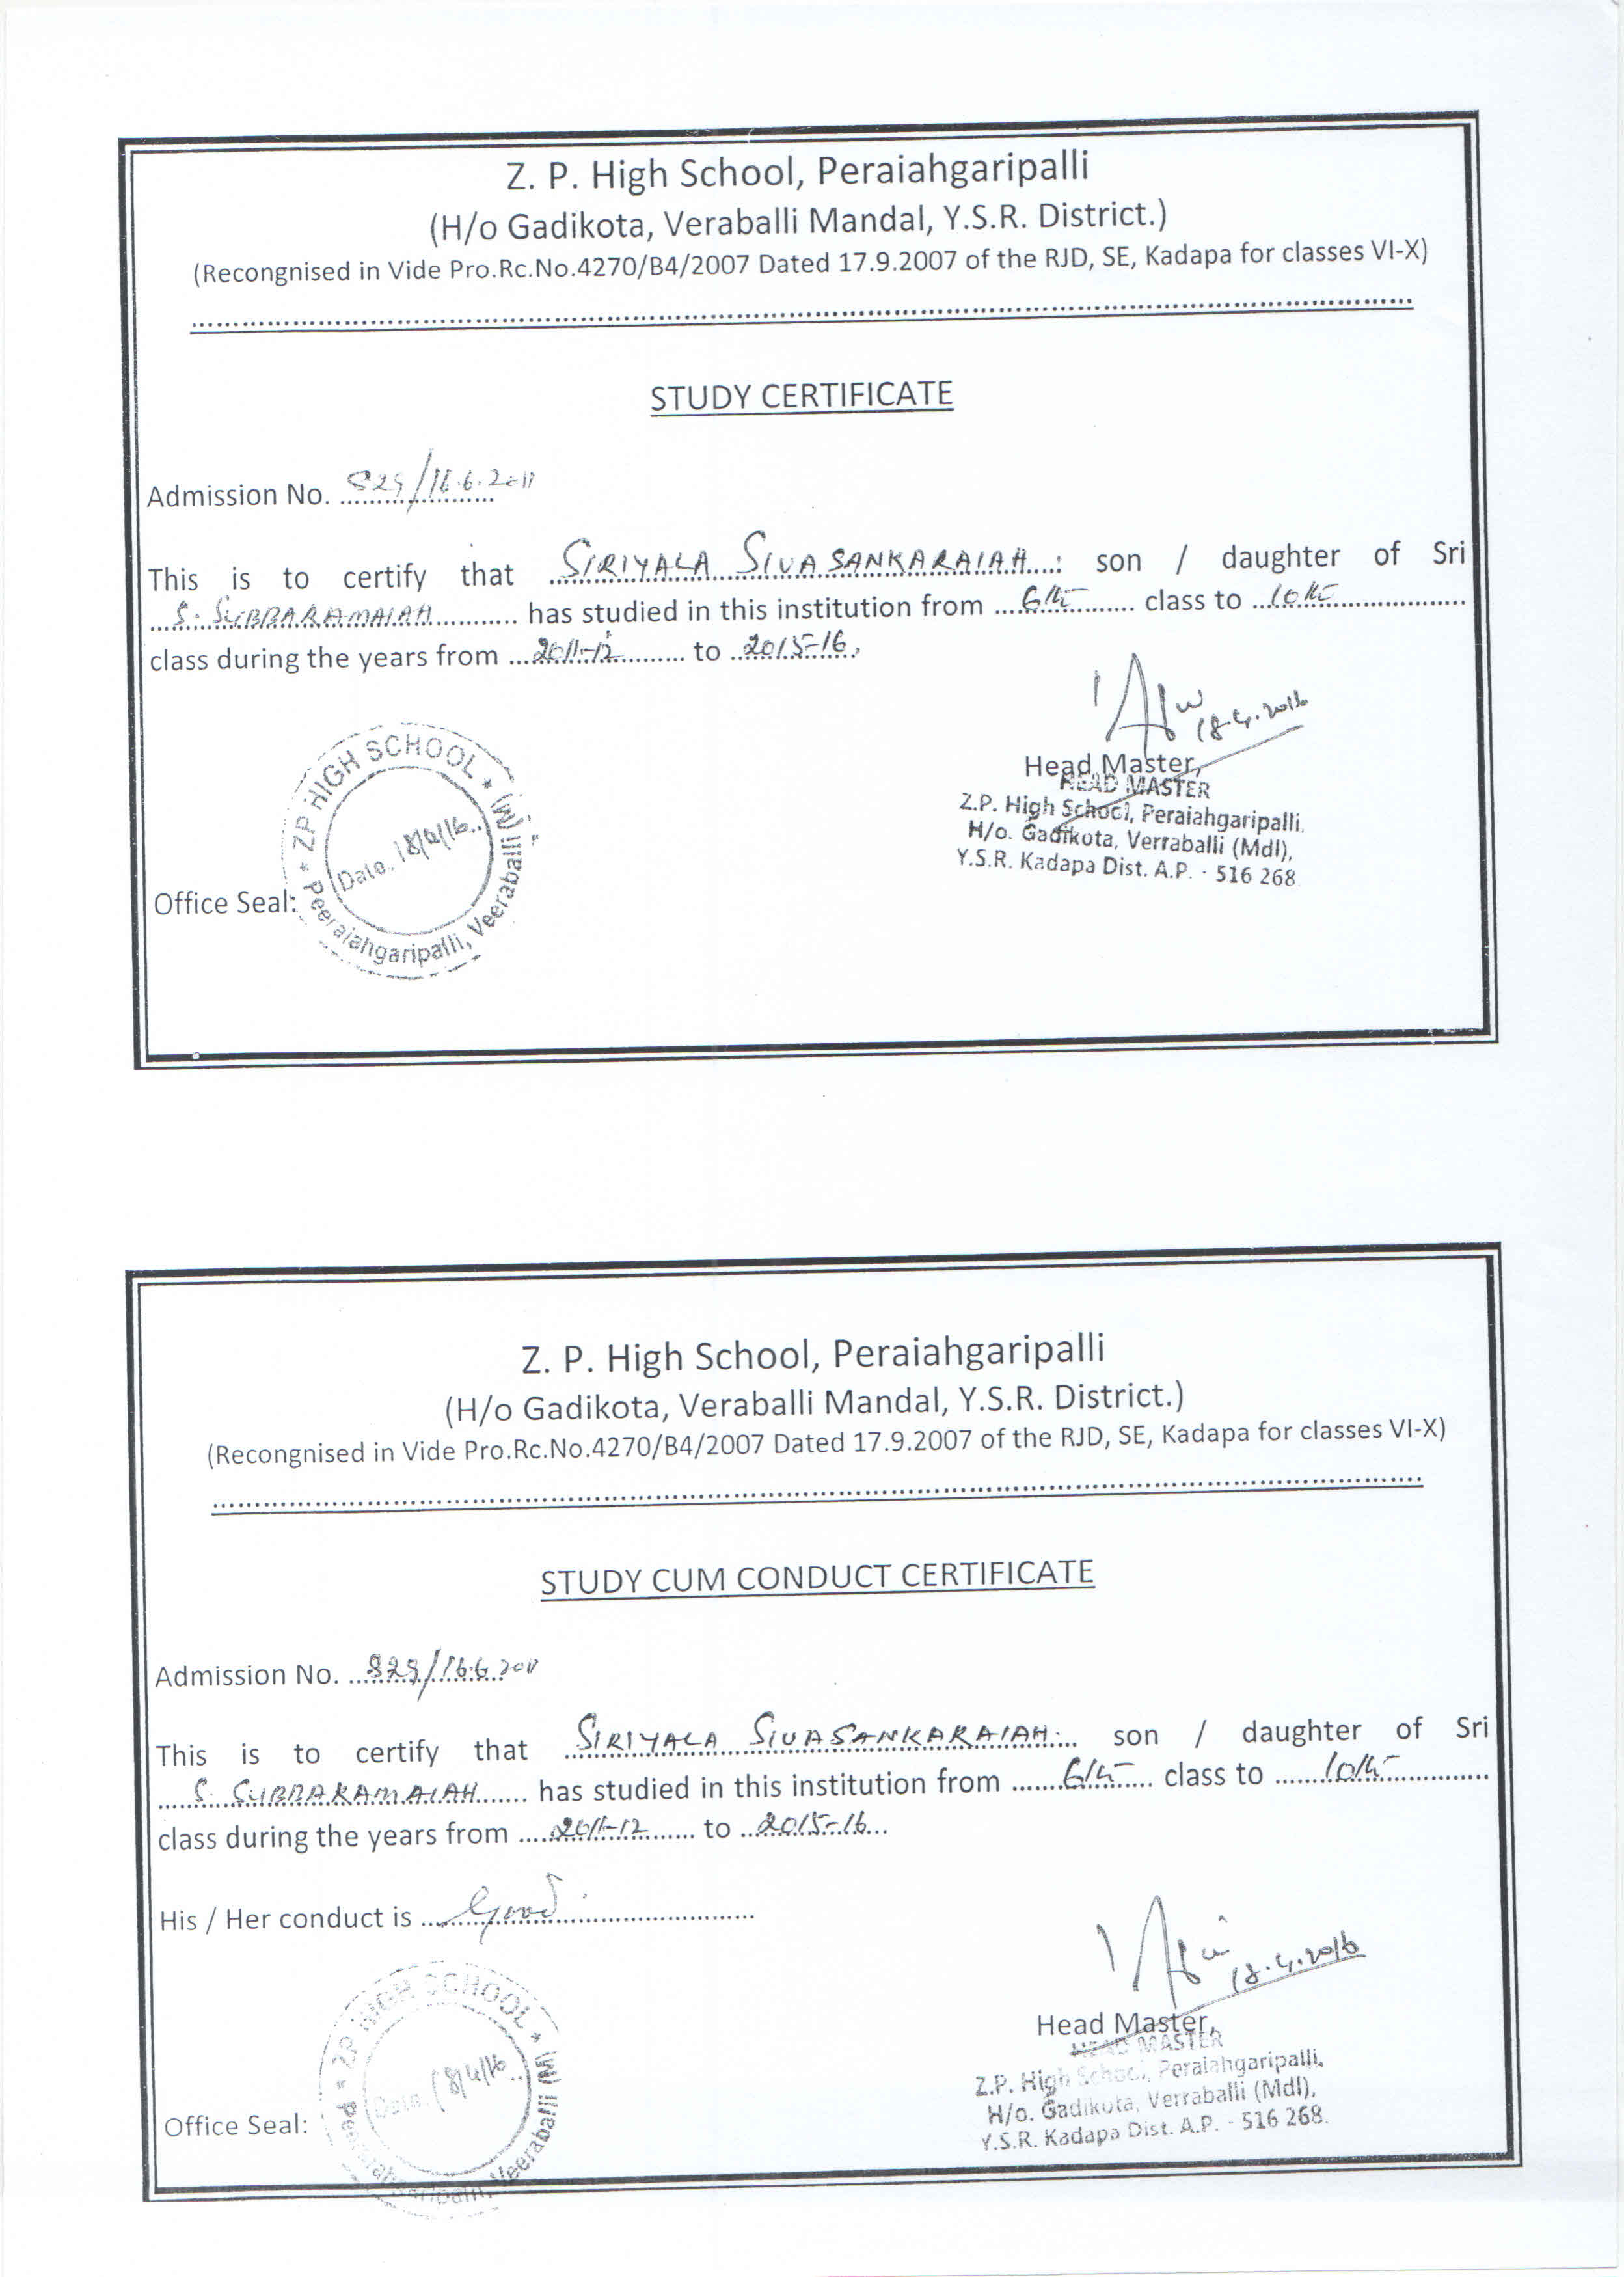 Z. P. High School, Peraiahgaripalli
(H/o Gadikota, Veraballi Mandal, Y.S.R. District.)
(Recongnised in Vide Pro.Rc.No.4270/B4/2007 Dated 17.9.2007 of the RJD, SE, Kadapa for classes VI-X)
STUDY CERTIFICATE
Admission No. 829/16.6.2011
This is to certify that SIRIYALA SIVASANKARAIAH. son / daughter of Sri
S. SUBBARAMAIAH has studied in this institution from 6th class to 10th
class during the years from 2011-12 to 2015-16.
18.4.2016
Head Master,
HEAD MASTER
Z.P. High School, Peraiahgaripalli.
H/o. Gadikota, Verraballi (Mdl),
Y.S.R. Kadapa Dist. A.P. - 516 268
Office Seal:
* ZP HIGH SCHOOL * Peeraiahgaripalli, Veeraballi (M)
Date. 18/4/16
Z. P. High School, Peraiahgaripalli
(H/o Gadikota, Veraballi Mandal, Y.S.R. District.)
(Recongnised in Vide Pro.Rc.No.4270/B4/2007 Dated 17.9.2007 of the RJD, SE, Kadapa for classes VI-X)
STUDY CUM CONDUCT CERTIFICATE
Admission No. 829/16.6.2011
This is to certify that SIRIYALA SIVASANKARAIAH. son / daughter of Sri
S. SUBBARAMAIAH has studied in this institution from 6th class to 10th
class during the years from 2011-12 to 2015-16
His / Her conduct is Good.
18.4.2016
Head Master,
HEAD MASTER
Z.P. High School, Peraiahgaripalli,
H/o. Gadikota, Verraballi (Mdl),
Y.S.R. Kadapa Dist. A.P. - 516 268.
Office Seal:
* ZP HIGH SCHOOL * Peeraiahgaripalli, Veeraballi (M)
Date. 18/4/16